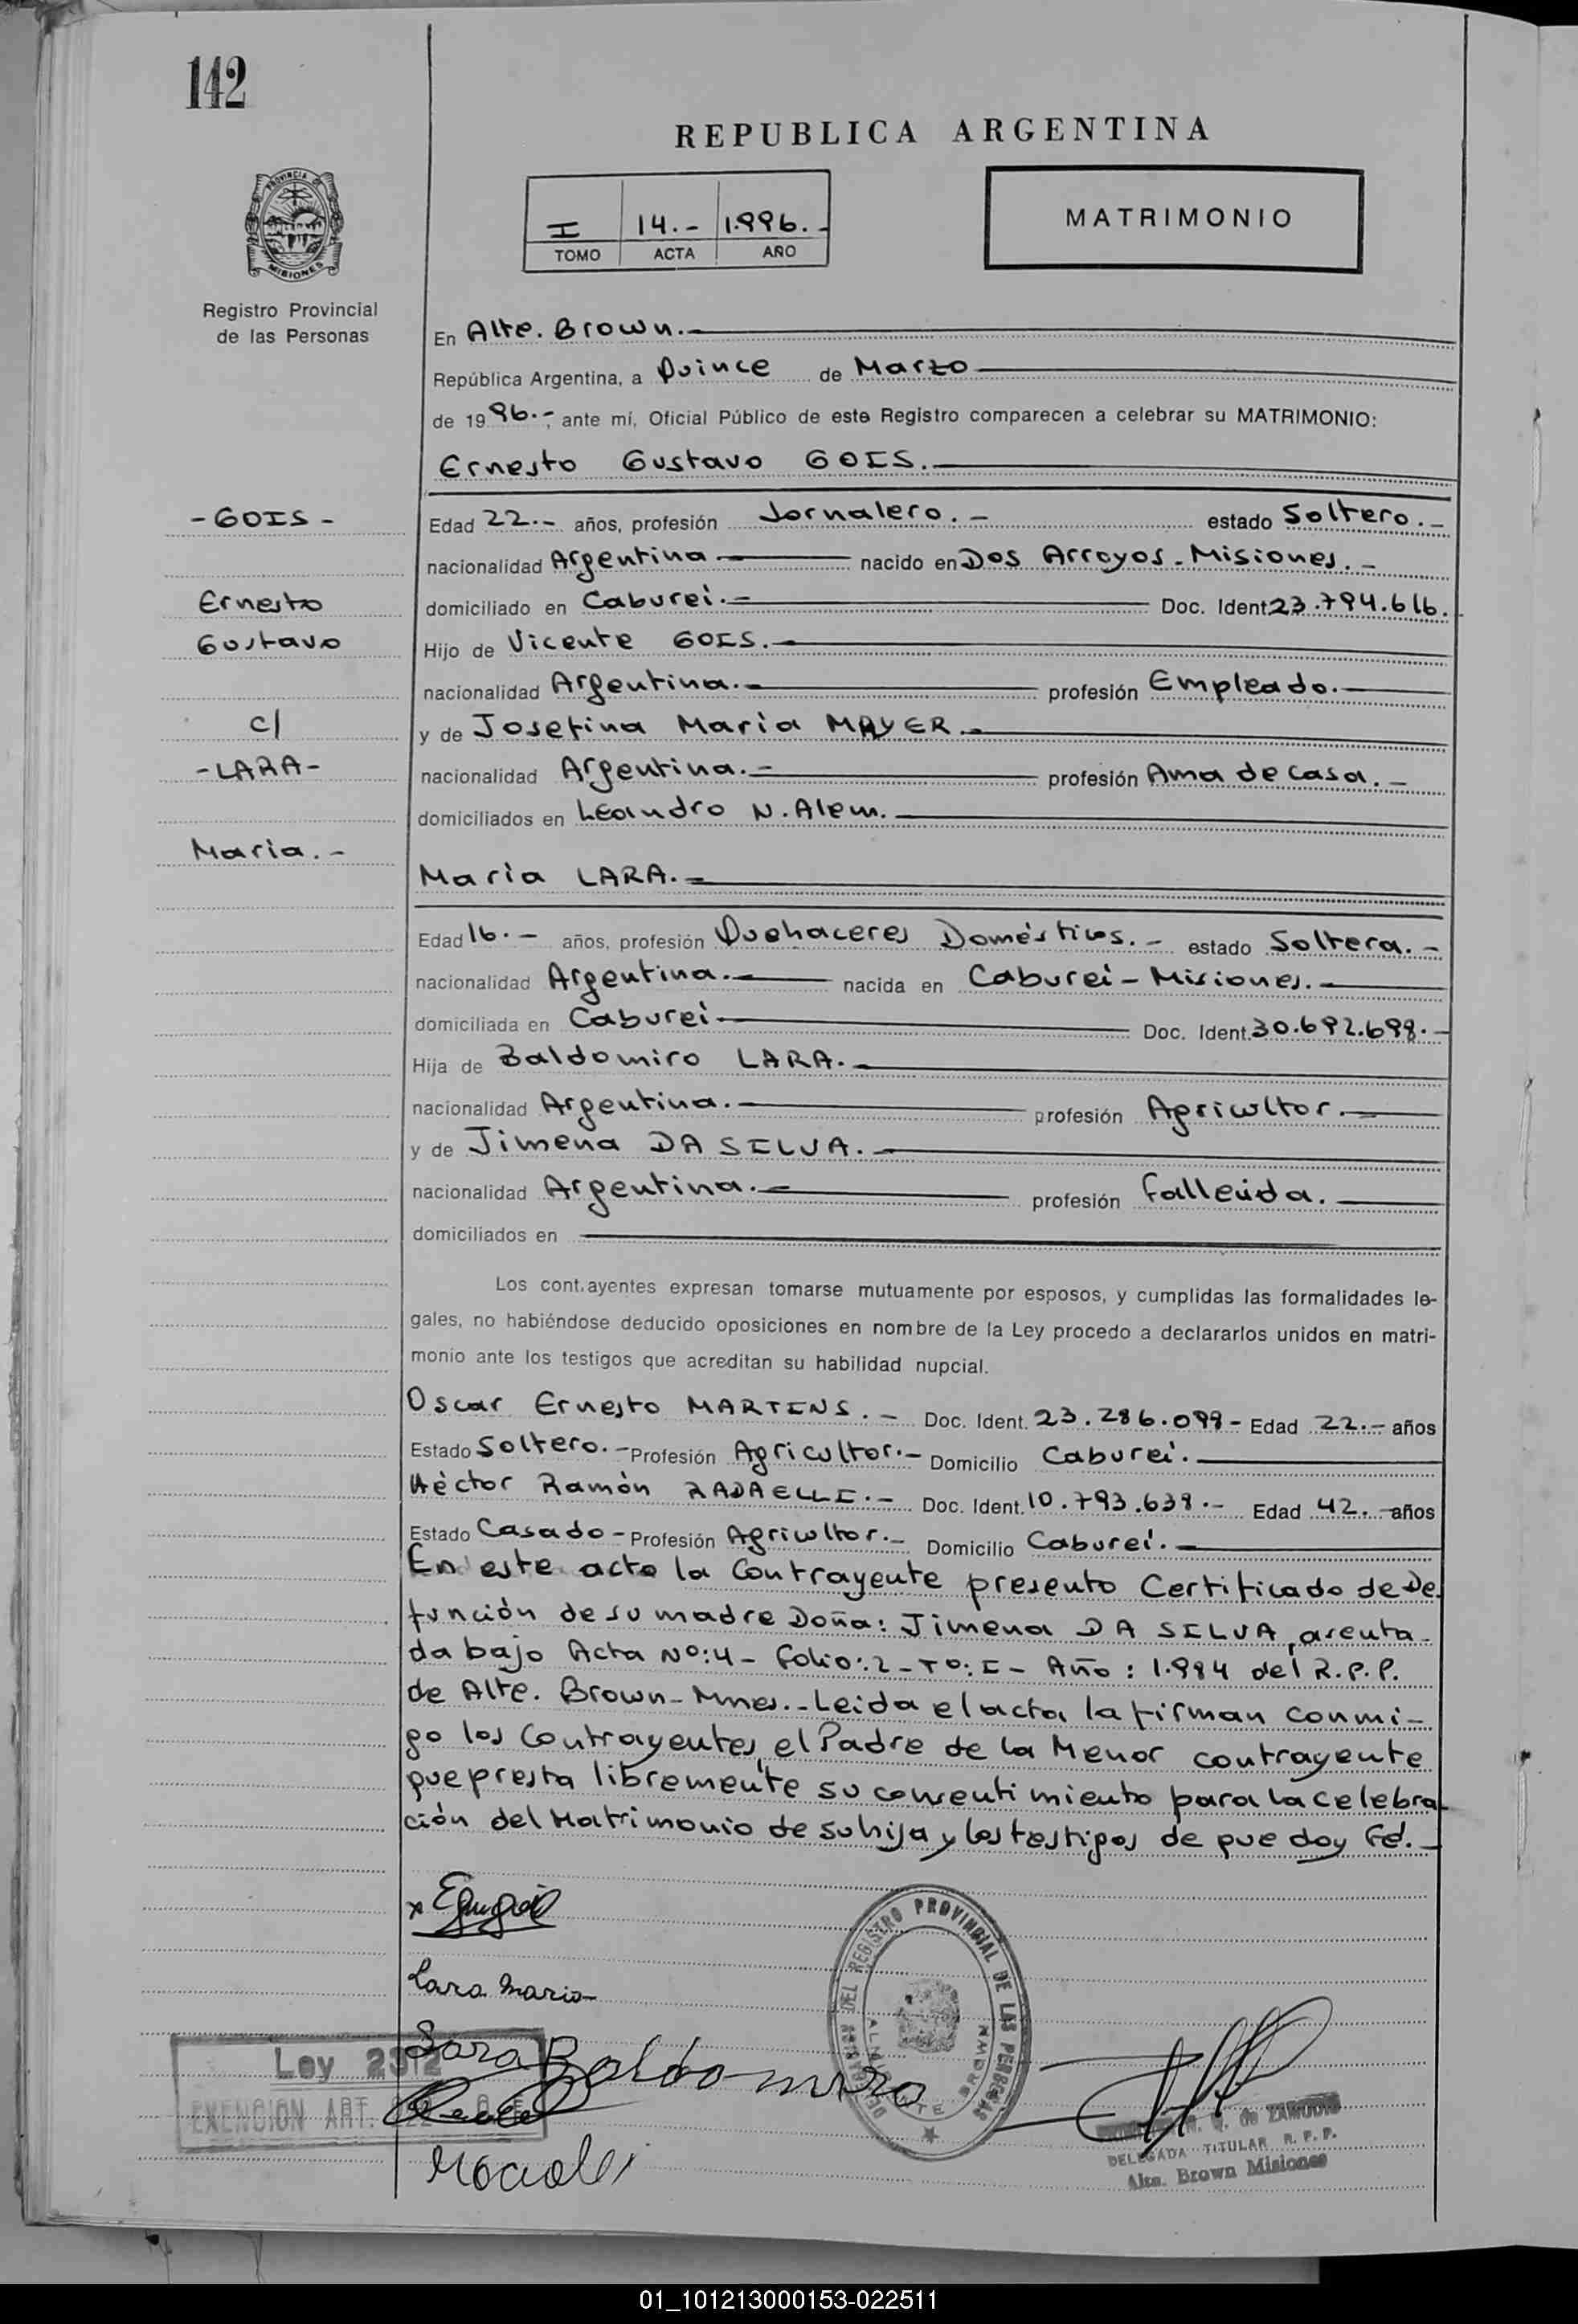 142
REPUBLICA ARGENTINA
PROVINCIA DE MISIONES
I 14.- 1.996.-
TOMO ACTA AÑO
MATRIMONIO
Registro Provincial
de las Personas
En Alte. Brown.-
República Argentina, a Quince de Marzo
de 1996.-, ante mí, Oficial Público de este Registro comparecen a celebrar su MATRIMONIO:
Ernesto Gustavo GOIS.
-GOIS-
Edad 22.- años, profesión Jornalero.- estado Soltero.-
nacionalidad Argentina nacido en Dos Arroyos-Misiones.-
Ernesto
domiciliado en Caburei.- Doc. Ident. 23.794.616.
Gustavo
Hijo de Vicente GOIS.
nacionalidad Argentina.- profesión Empleado.
c/
y de Josefina María MAYER.-
-LARA-
nacionalidad Argentina.- profesión Ama de casa.-
domiciliados en Leandro N. Alem.
Maria.-
Maria LARA.-
Edad 16.- años, profesión Quehaceres Domésticos.- estado Soltera.-
nacionalidad Argentina.- nacida en Caburei-Misiones.-
domiciliada en Caburei Doc. Ident. 30.692.698.-
Hija de Baldomiro LARA.-
nacionalidad Argentina.- profesión Agricultor.-
y de Jimena DA SILVA.-
nacionalidad Argentina.- profesión fallecida.
domiciliados en
Los cont.ayentes expresan tomarse mutuamente por esposos, y cumplidas las formalidades le-
gales, no habiéndose deducido oposiciones en nombre de la Ley procedo a declararlos unidos en matri-
monio ante los testigos que acreditan su habilidad nupcial.
Oscar Ernesto MARTINS.- Doc. Ident. 23.286.099- Edad 22.- años
Estado Soltero.- Profesión Agricultor.- Domicilio Caburei.
Héctor Ramón RADAELLI.- Doc. Ident. 10.793.639.- Edad 42.- años
Estado Casado- Profesión Agricultor.- Domicilio Caburei.
En este acto la Contrayente presento Certificado de De
función de su madre Doña: Jimena DA SILVA, asenta-
da bajo Acta Nº:4- folio:2-Tº:I- Año: 1.984 del R.P.P.
de Alte. Brown-Mnes.-Leida el acta la firman conmi-
go los Contrayentes, el Padre de la Menor contrayente
que presta libremente su consentimiento para la celebra
ción del Matrimonio de su hija y los testigos de que doy Fé.-
Lara Maria
Lara Baldomiro
Ley 2312
EXENCION ART.
DELEGACION DEL REGISTRO PROVINCIAL DE LAS PERSONAS
ALMIRANTE BROWN
de ZAMUDIO
DELEGADA TITULAR R. P. P.
Alte. Brown Misiones
01_101213000153-022511